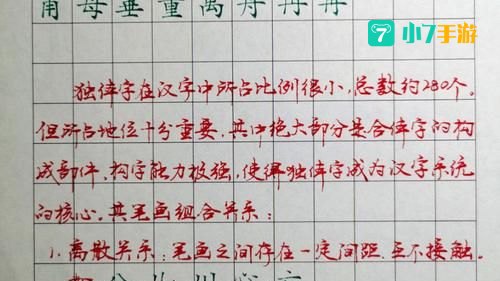 甭母垂重禹舟冉再
小7手游
独体字在汉字中所占比例很小，总数约280个。
但所占地位十分重要，其中绝大部分是合体字的构
成部件，构字能力极强，使得独体字成为汉字系统
的核心。其笔画组合关系：
1.离散关系：笔画之间存在一定间距，互不接触。